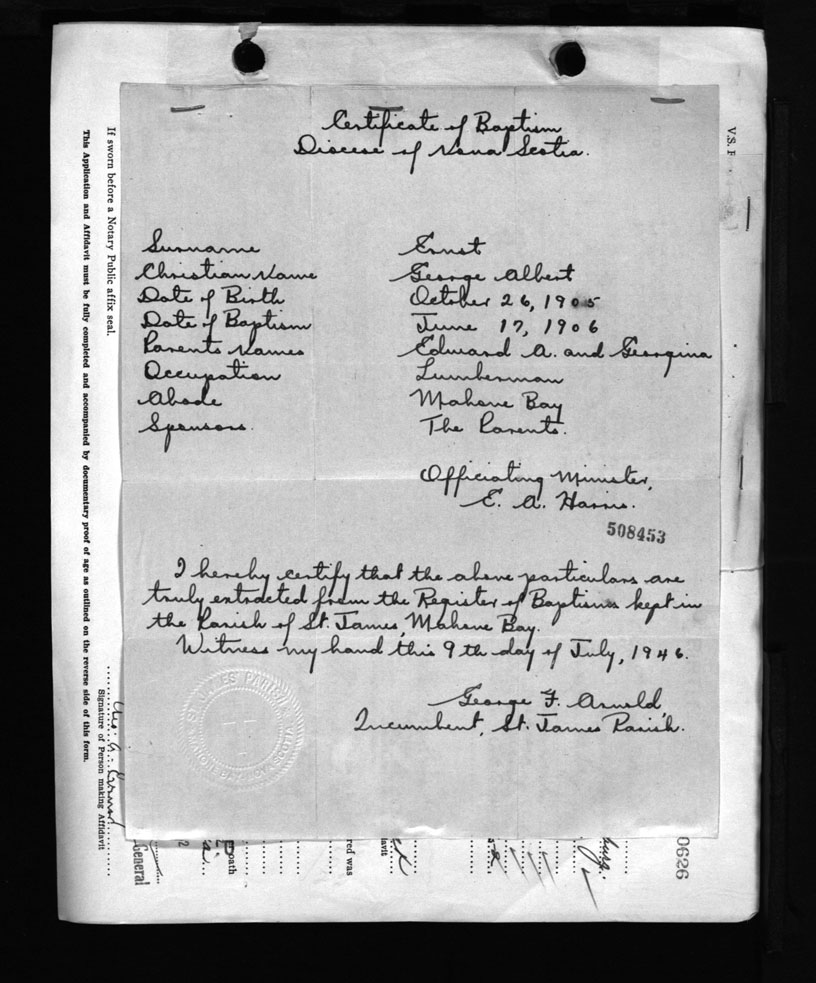 Certificate of Baptism
Diocese of Nova Scotia.
Surname Ernst
Christian Name George Albert
Date of Birth October 26, 1905
Date of Baptism June 17, 1906
Parents Names Edward A. and Georgina
Occupation Lumberman
Abode Mahone Bay
Sponsors. The Parents.
Officiating Minister,
E. A. Harris.
508453
I hereby certify that the above particulars are
truly extracted from the Register of Baptisms kept in
the Parish of St. James, Mahone Bay.
Witness my hand this 9th day of July, 1946.
George F. Arnold
Incumbent, St. James Parish.
ST. JAMES PARISH
MAHONE BAY, NOVA SCOTIA
V.S. F
If sworn before a Notary Public affix seal.
This Application and Affidavit must be fully completed and accompanied by documentary proof of age as outlined on the reverse side of this form.
Signature of Person making Affidavit
General
oath
red was
davit
burg.
0626